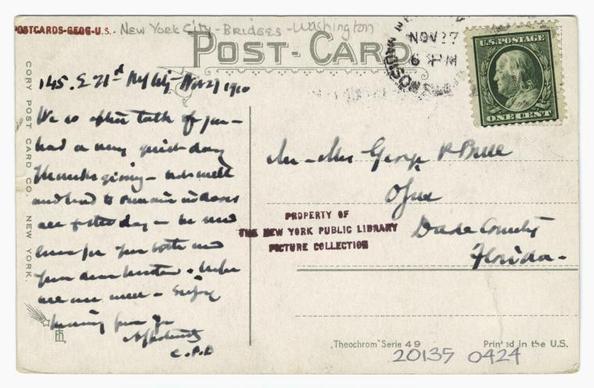 POSTCARDS-GEOG-U.S. - New York City - Bridges - Washington
POST-CARD.
NOV 27
6 PM
HUDSON
U.S. POSTAGE
ONE CENT
CORY POST CARD CO. NEW YORK.
145. E 21st Ny City - Nov 27 1910
We so often talk of you -
had a very quiet day
Thanksgiving - not well
and had to remain indoors
all
love for you both and
your dear
are well - Enjoy
hearing from you
C. P. D
Mr - Mrs George
Ojus
Dade County
Florida -
PROPERTY OF
THE NEW YORK PUBLIC LIBRARY
PICTURE COLLECTION
„Theochrom" Serie 49
Printed in the U.S.
20135 0424